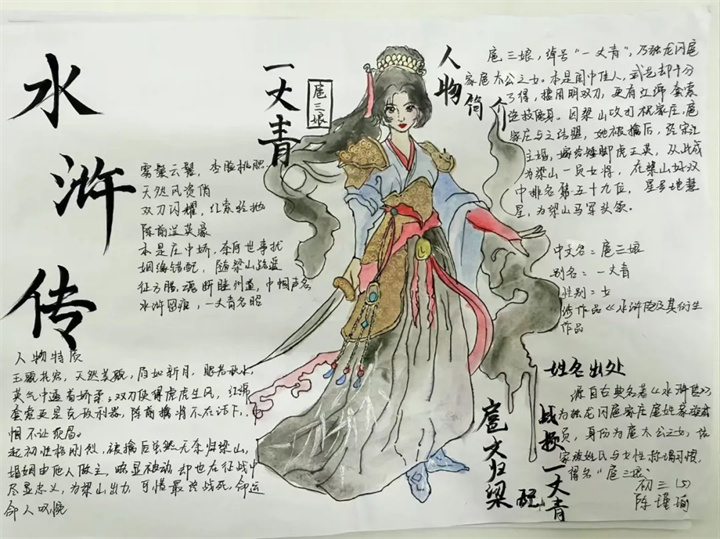 水浒传
一丈青
扈三娘
人物简介
扈三娘,绰号“一丈青”,乃独龙冈扈
家庄太公之女。本是闺中佳人,武艺却十分
了得,擅用日月双刀,更有红绵套索
因梁山攻打祝家庄,扈
家庄与之结盟,她被擒后,经宋江
主婚,嫁给矮脚虎王英,从此成
为梁山一员女将,在梁山好汉
中排名第五十九位,星号地慧
星,为梁山马军头领。
雾鬓云鬟,杏脸桃腮
天然风姿俏
双刀闪耀,红索轻抛
陈前逞英豪
本是庄中娇,奈何世事扰
姻缘错配,随梁山
征方腊,魂断睦州道,巾帼声名
水浒留痕,一丈青名昭
中文名:扈三娘
别名:一丈青
性别:女
涉作品《水浒传》及其衍生
作品
人物特质
玉貌花容,天然美貌,眉如新月,眼若秋水,
英气中透着娇柔;双刀使得虎虎生风,红绵
套索更是克敌利器,陈前擒将不在话下,巾
帼不让须眉。
起初性格刚烈,被擒后茫然无奈归梁山,
婚姻由他人做主,略显被动,却也在征战中
尽显忠义,为梁山出力,可惜最终战死,命运
令人叹惋
姓名出处
源自古典名著《水浒传》,
为独龙冈扈家庄扈姓家族成
员,身份为扈太公之女,依
家族姓氏与女性称谓习惯,
得名“扈三娘”
扈女归梁
战袍一丈青
初三(5)
陈瑾瑜